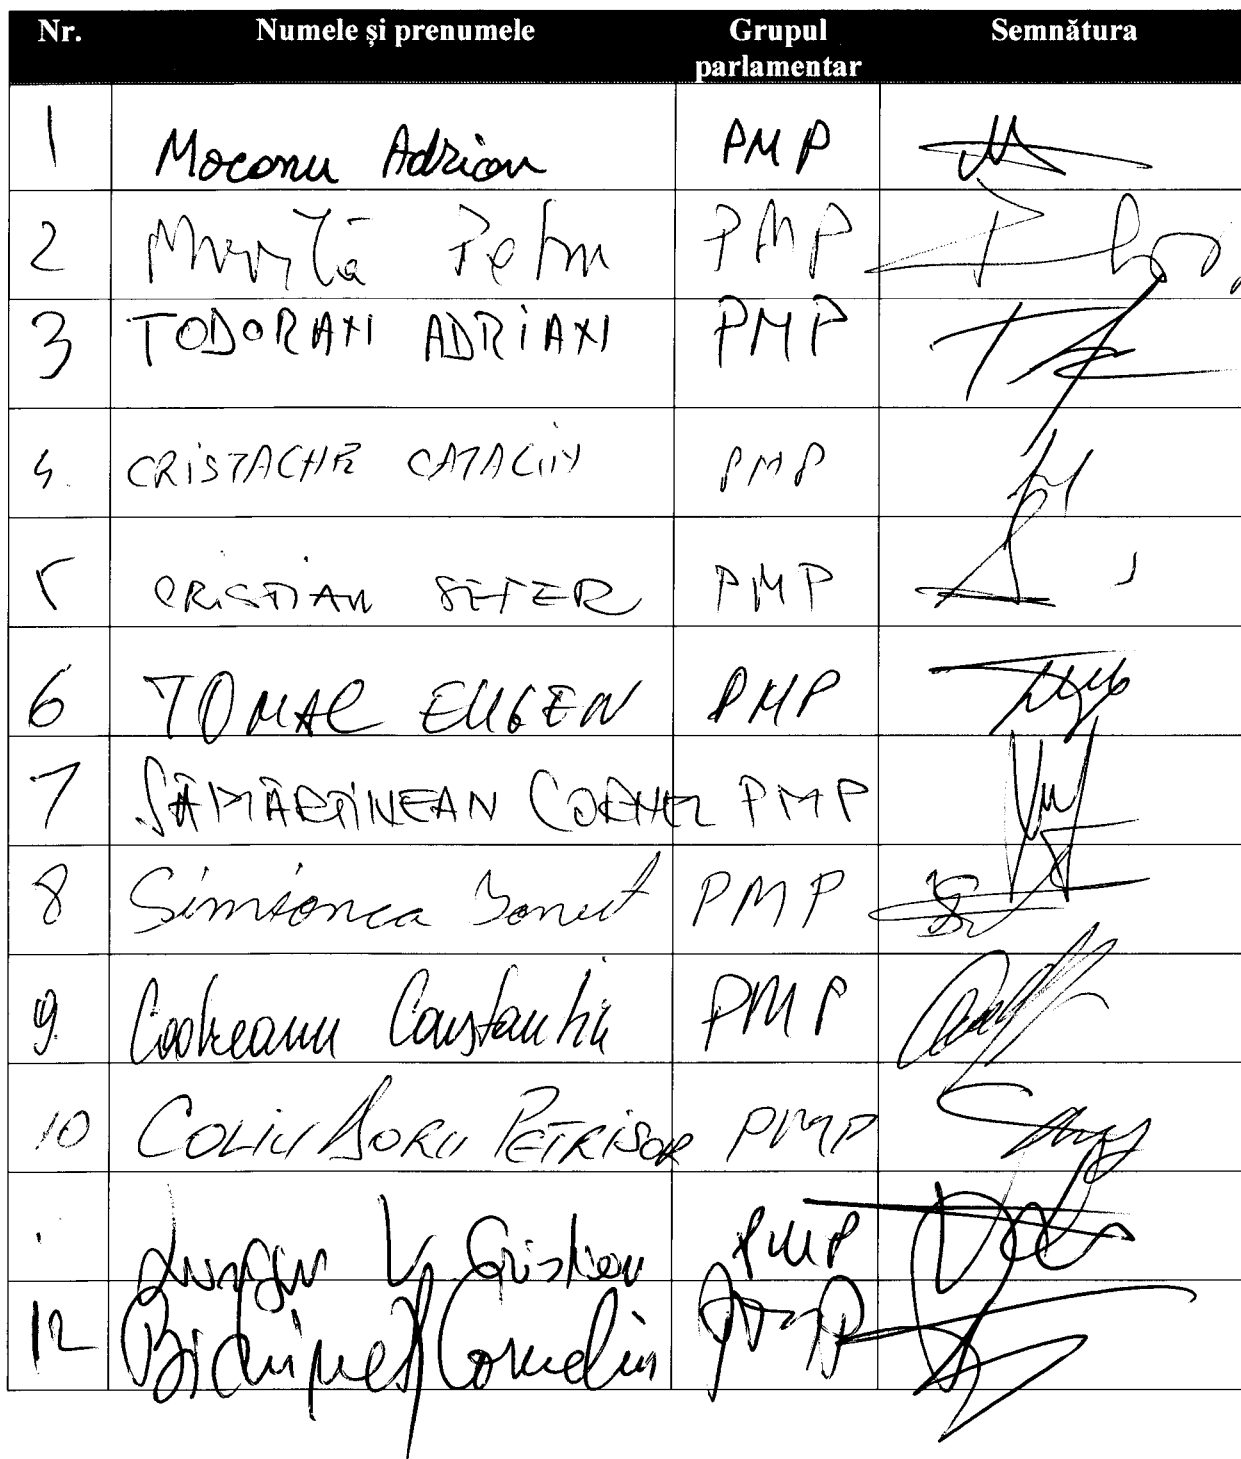 Nr. Numele și prenumele Grupul parlamentar Semnătura
1 Mocanu Adrian PMP
2 Movilă Petru PMP
3 TODORAN ADRIAN PMP
4. CRISTACHE CATALIN PMP
5 CRISTIAN SEFER PMP
6 TOMAC EUGEN PMP
7 SĂMĂRTINEAN CORNEL PMP
8 Simionca Ionut PMP
9. Codreanu Constantin PMP
10 COLIU DORU PETRISOR PMP
Lungu V Cristian PMP
12 Bichineț Corneliu PMP